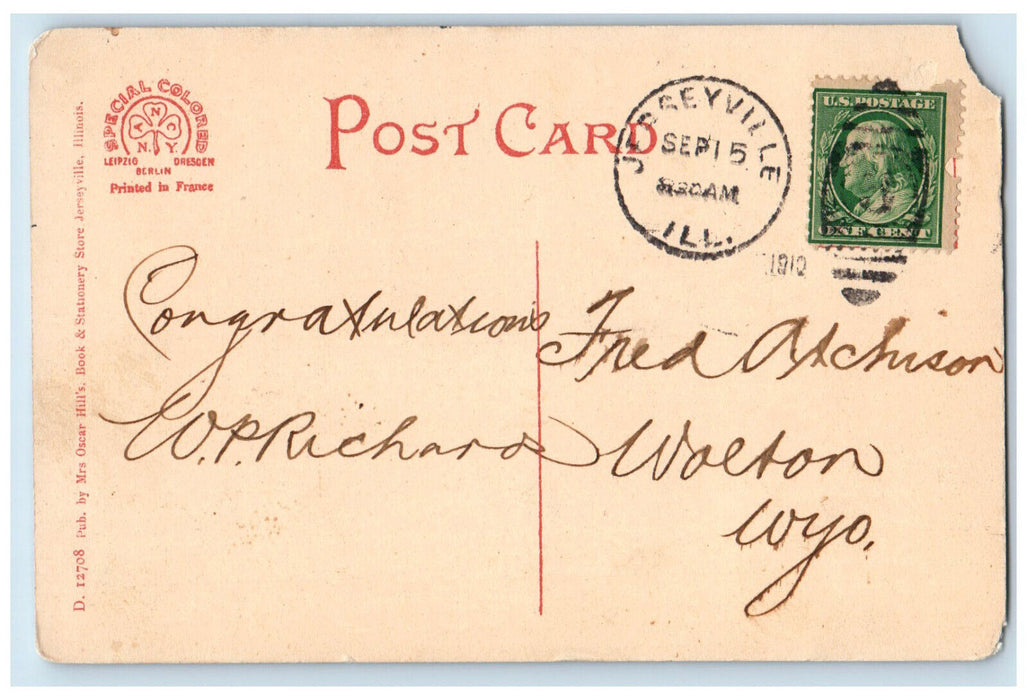 SPECIAL COLORED
A N C
N.Y.
LEIPZIG DRESDEN
BERLIN
Printed in France
POST CARD
JERSEYVILLE
SEP 15
8:30 AM
ILL.
1910
U.S. POSTAGE
ONE CENT
Congratulations
W.P. Richards
Fred Atchison
Wolton
Wyo.
D. 12708 Pub. by Mrs Oscar Hill's, Book & Stationery Store Jerseyville, Illinois.